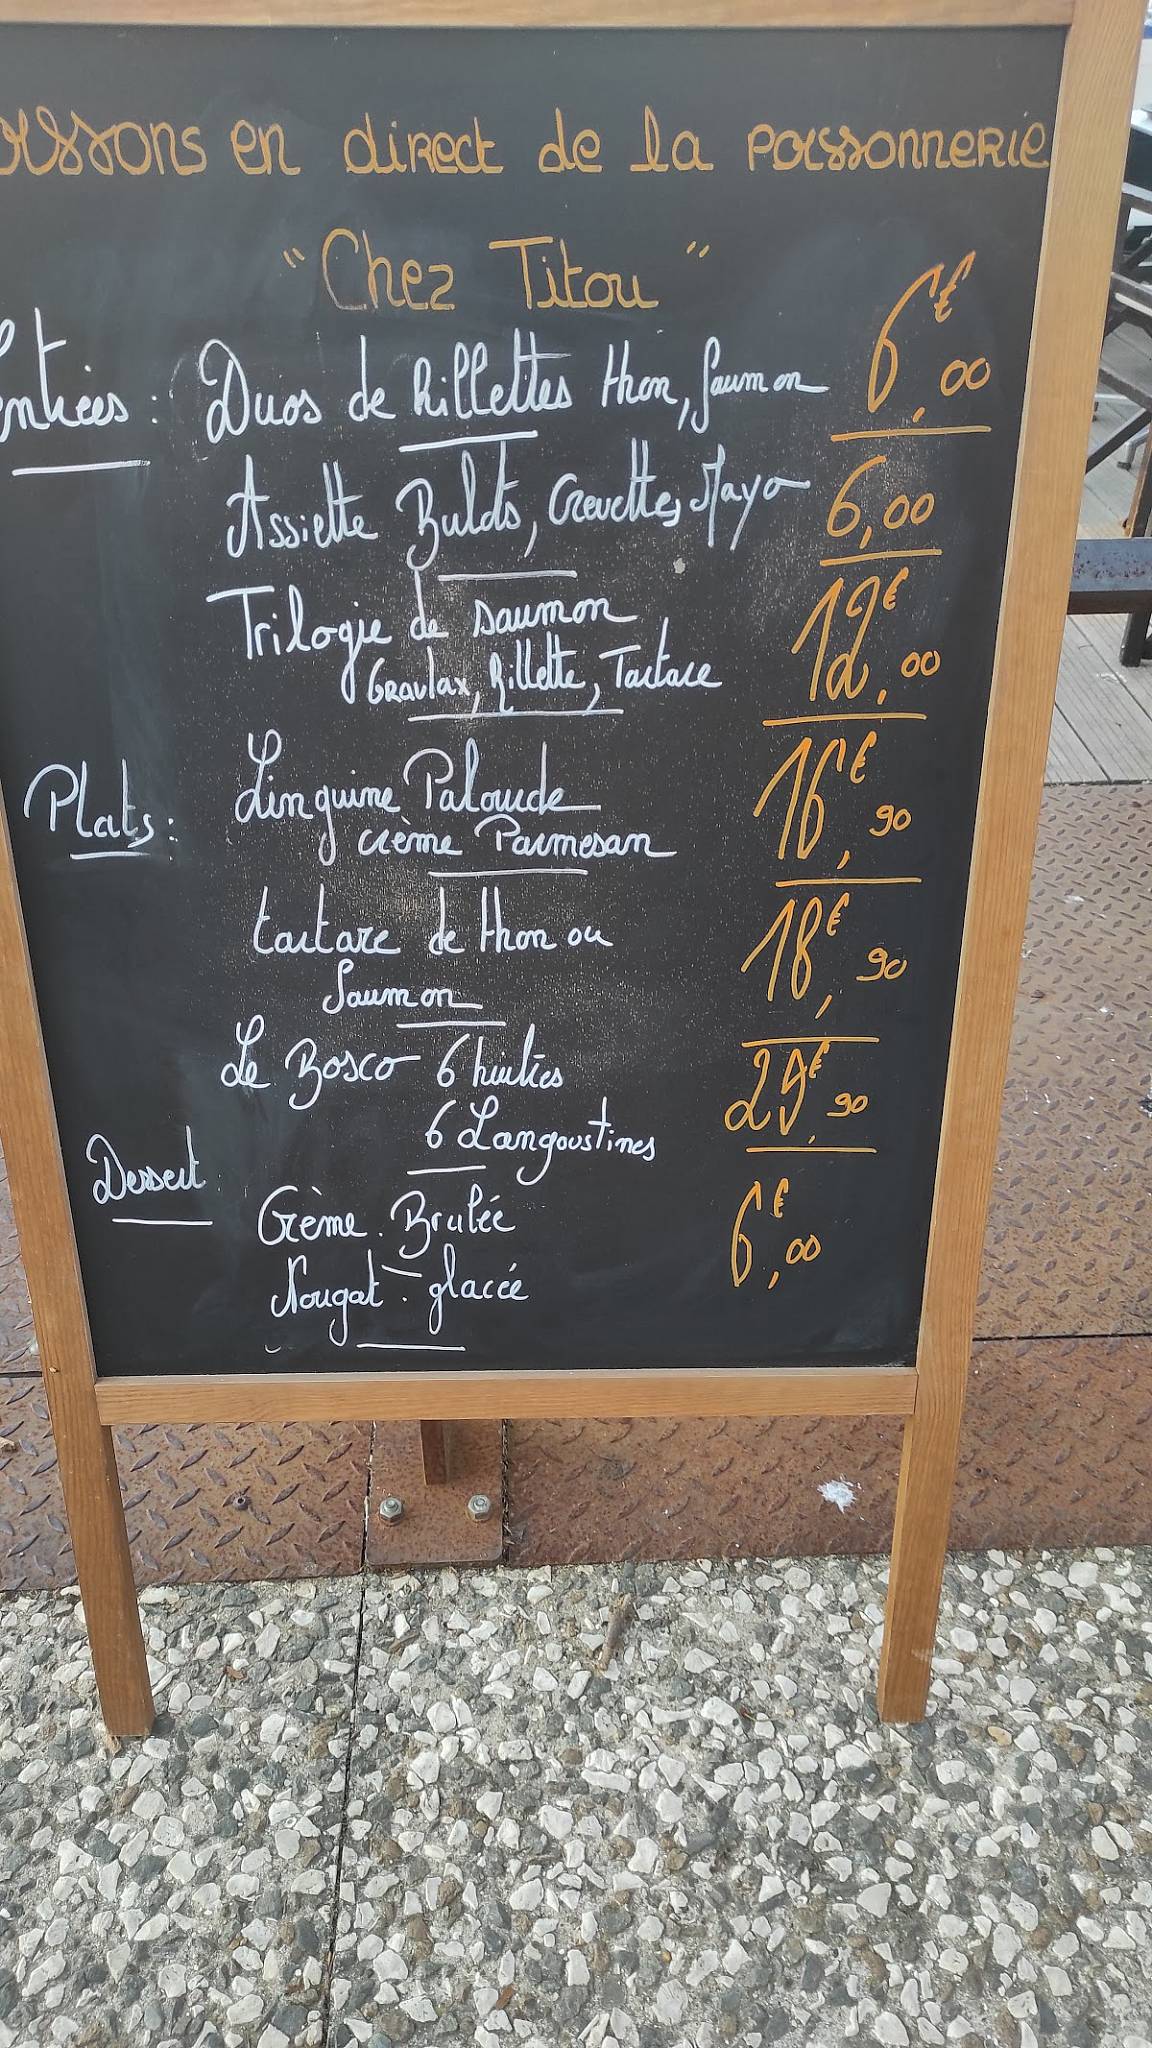 oissons en direct de la poissonnerie
"Chez Titou"
Entrées : Duos de Rillettes thon, saumon 6€,00
Assiette Bulots, Crevettes, Mayo 6,00
Trilogie de saumon 12€,00
Gravlax, Rillette, Tartare
Plats : Linguine Palourde 16€,90
crème Parmesan
tartare de thon ou 18€,90
Saumon
Le Bosco 6 huitres
6 Langoustines €,90
Dessert
Crème Brulée 6€,00
Nougat glacée